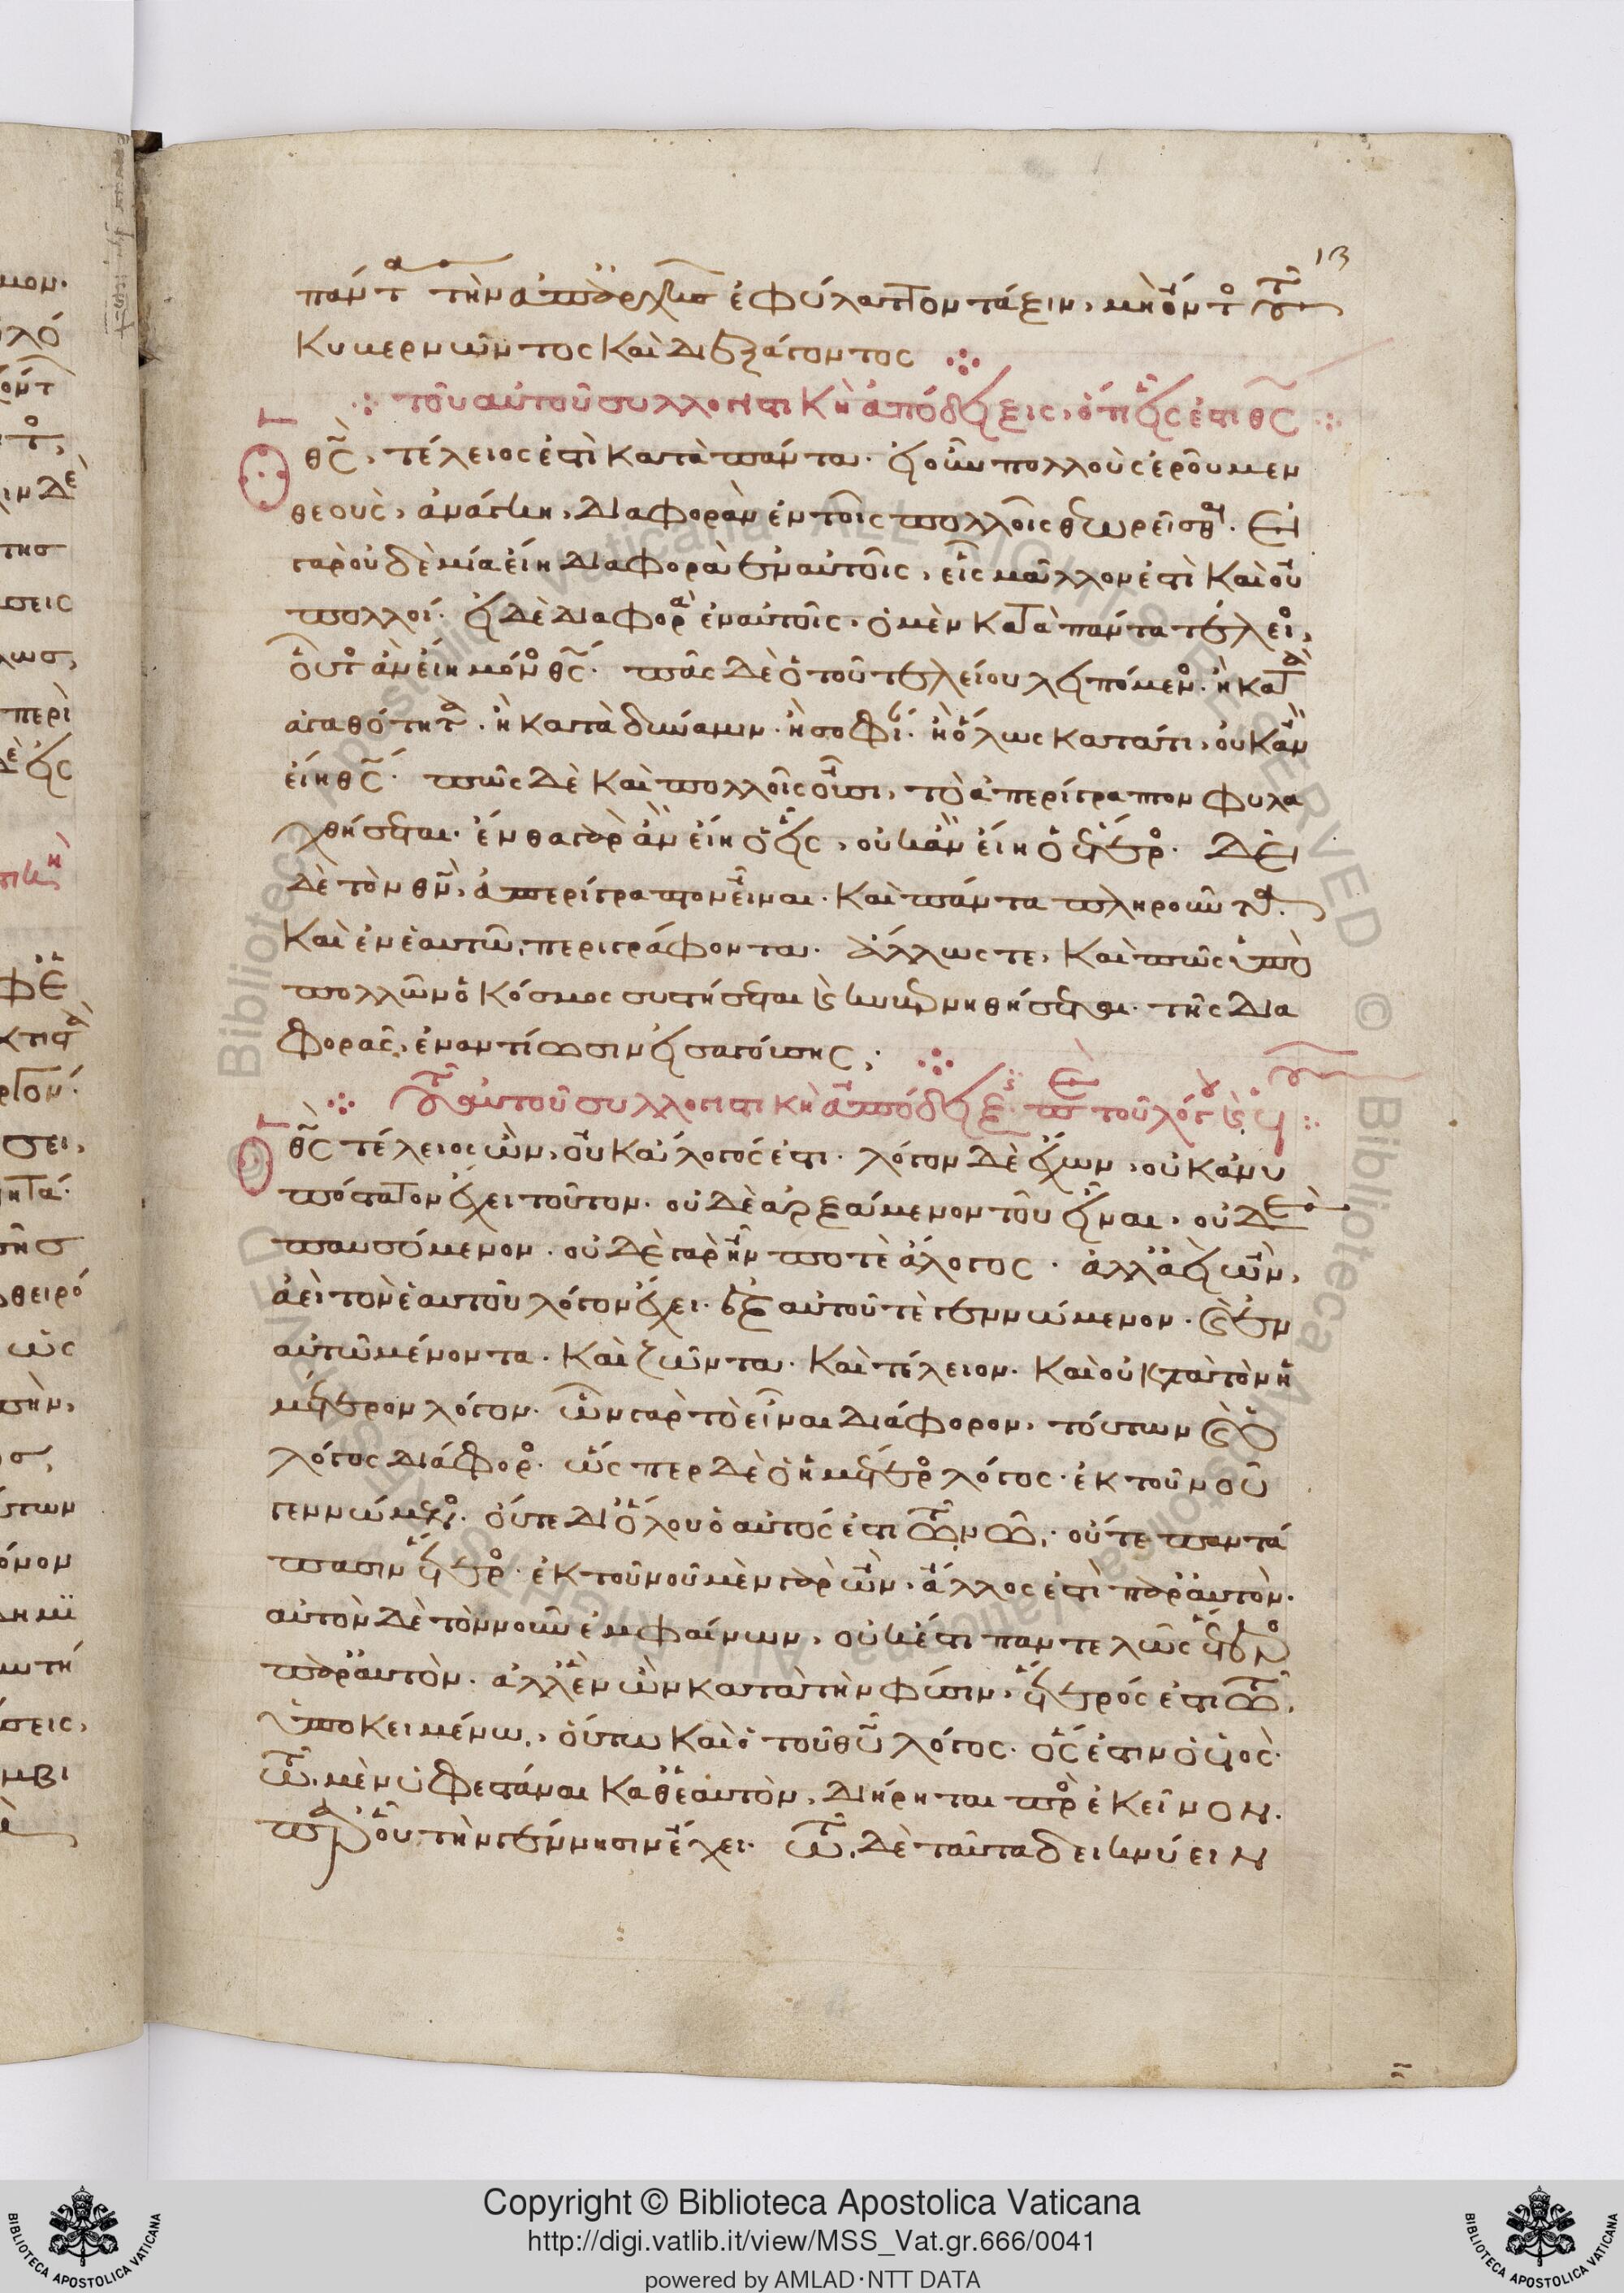 13
πάντα τὴν ἀπαρχῆς ἐφύλαττον τάξιν, μὴ ὄντος τοῦ
Κυβερνῶντος καὶ διεξάγοντος
τοῦ αὐτοῦ συλλογιστικὴ ἀπόδειξις, ὅτι εἷς ἐστι θς
Ὁ θς, τέλειός ἐστι κατὰ πάντα. εἰ οὖν πολλοὺς ἐροῦμεν
θεοὺς, ἀνάγκη, διαφορὰν ἐν τοῖς πολλοῖς θεωρεῖσθαι. εἰ
γὰρ οὐδὲ μία εἴη διαφορὰ ἐν αὐτοῖς, εἷς μᾶλλόν ἐστι καὶ οὐ
πολλοί. εἰ δὲ διαφορὰ ἐν αὐτοῖς, ὁ μὲν κατὰ πάντα τέλειος,
οὗτος ἂν εἴη μόνος θς. πᾶς δὲ ὁ τοῦ τελείου λειπόμενος. ἢ κατὰ
ἀγαθότητα. ἢ κατὰ δύναμιν. ἢ σοφίαν. ἢ ὅλως κατά τι, οὐκ ἂν
εἴη θς. πῶς δὲ καὶ πολλοῖς οὖσι, τὸ ἀπερίγραπτον φυλα
χθήσεται. ἔνθα γὰρ ἂν εἴη ὁ εἷς, οὐκ ἂν εἴη ὁ ἕτερος. Δεῖ
δὲ τὸν θν, ἀπερίγραπτον εἶναι. καὶ πάντα πληροῦντα.
καὶ ἐν ἑαυτῷ περιγράφοντα. ἄλλως τε, καὶ πῶς ὑπὸ
πολλῶν ὁ κόσμος συστήσεται καὶ κυβερνηθήσεται. τῆς δια
φορᾶς, ἐναντίωσιν εἰσαγούσης;
τοῦ αὐτοῦ συλλογιστικὴ ἀπόδειξις περὶ τοῦ λόγου καὶ υἱοῦ
Ὁ θς τέλειος ὢν, οὐκ ἄλογός ἐστι. λόγον δὲ ἔχων, οὐκ ἀνυ
πόστατον ἔχει τοῦτον. οὐδὲ ἀρξάμενον τοῦ εἶναι, οὐδὲ
παυσόμενον. οὐδὲ γὰρ ἦν ποτὲ ἄλογος. ἀλλὰ ἀεὶ ὢν,
ἀεὶ τὸν ἑαυτοῦ λόγον ἔχει. ἐξ αὐτοῦ τὲ γεννώμενον. καὶ ἐν
αὐτῷ μένοντα. καὶ ζῶντα. καὶ τέλειον. καὶ οὐ κατὰ τὸν ἡ
μέτερον λόγον. ὧν γὰρ τὸ εἶναι διάφορον, τούτων καὶ ὁ
λόγος διάφορος. ὥς περ δὲ ὁ ἡμέτερος λόγος. ἐκ τοῦ νοῦ
γεννώμενος. οὔτε δι ὅλου ὁ αὐτός ἐστι τῷ νῷ. οὔτε παντά
πασιν ἕτερος. ἐκ τοῦ νοῦ μὲν γὰρ ὢν. ἄλλος ἐστὶ παρ αὐτὸν.
αὐτὸν δὲ τὸν νοῦν ἐμφαίνων, οὐκέτι παντελῶς ἕτερος
παρ αὐτὸν. ἀλλ ἓν ὢν κατὰ τὴν φύσιν, ἕτερός ἐστι τῷ
ὑποκειμένῳ, οὕτω καὶ ὁ τοῦ θυ λόγος. ὅς ἐστιν ὁ υἱὸς.
τῷ μὲν ὑφεστάναι καθ ἑαυτὸν, διῄρηται πρὸς ἐκεῖνον.
παρ οὗ τὴν γέννησιν ἔχει. τῷ δὲ ταῦτα δεικνύειν
Copyright © Biblioteca Apostolica Vaticana
http://digi.vatlib.it/view/MSS_Vat.gr.666/0041
powered by AMLAD·NTT DATA